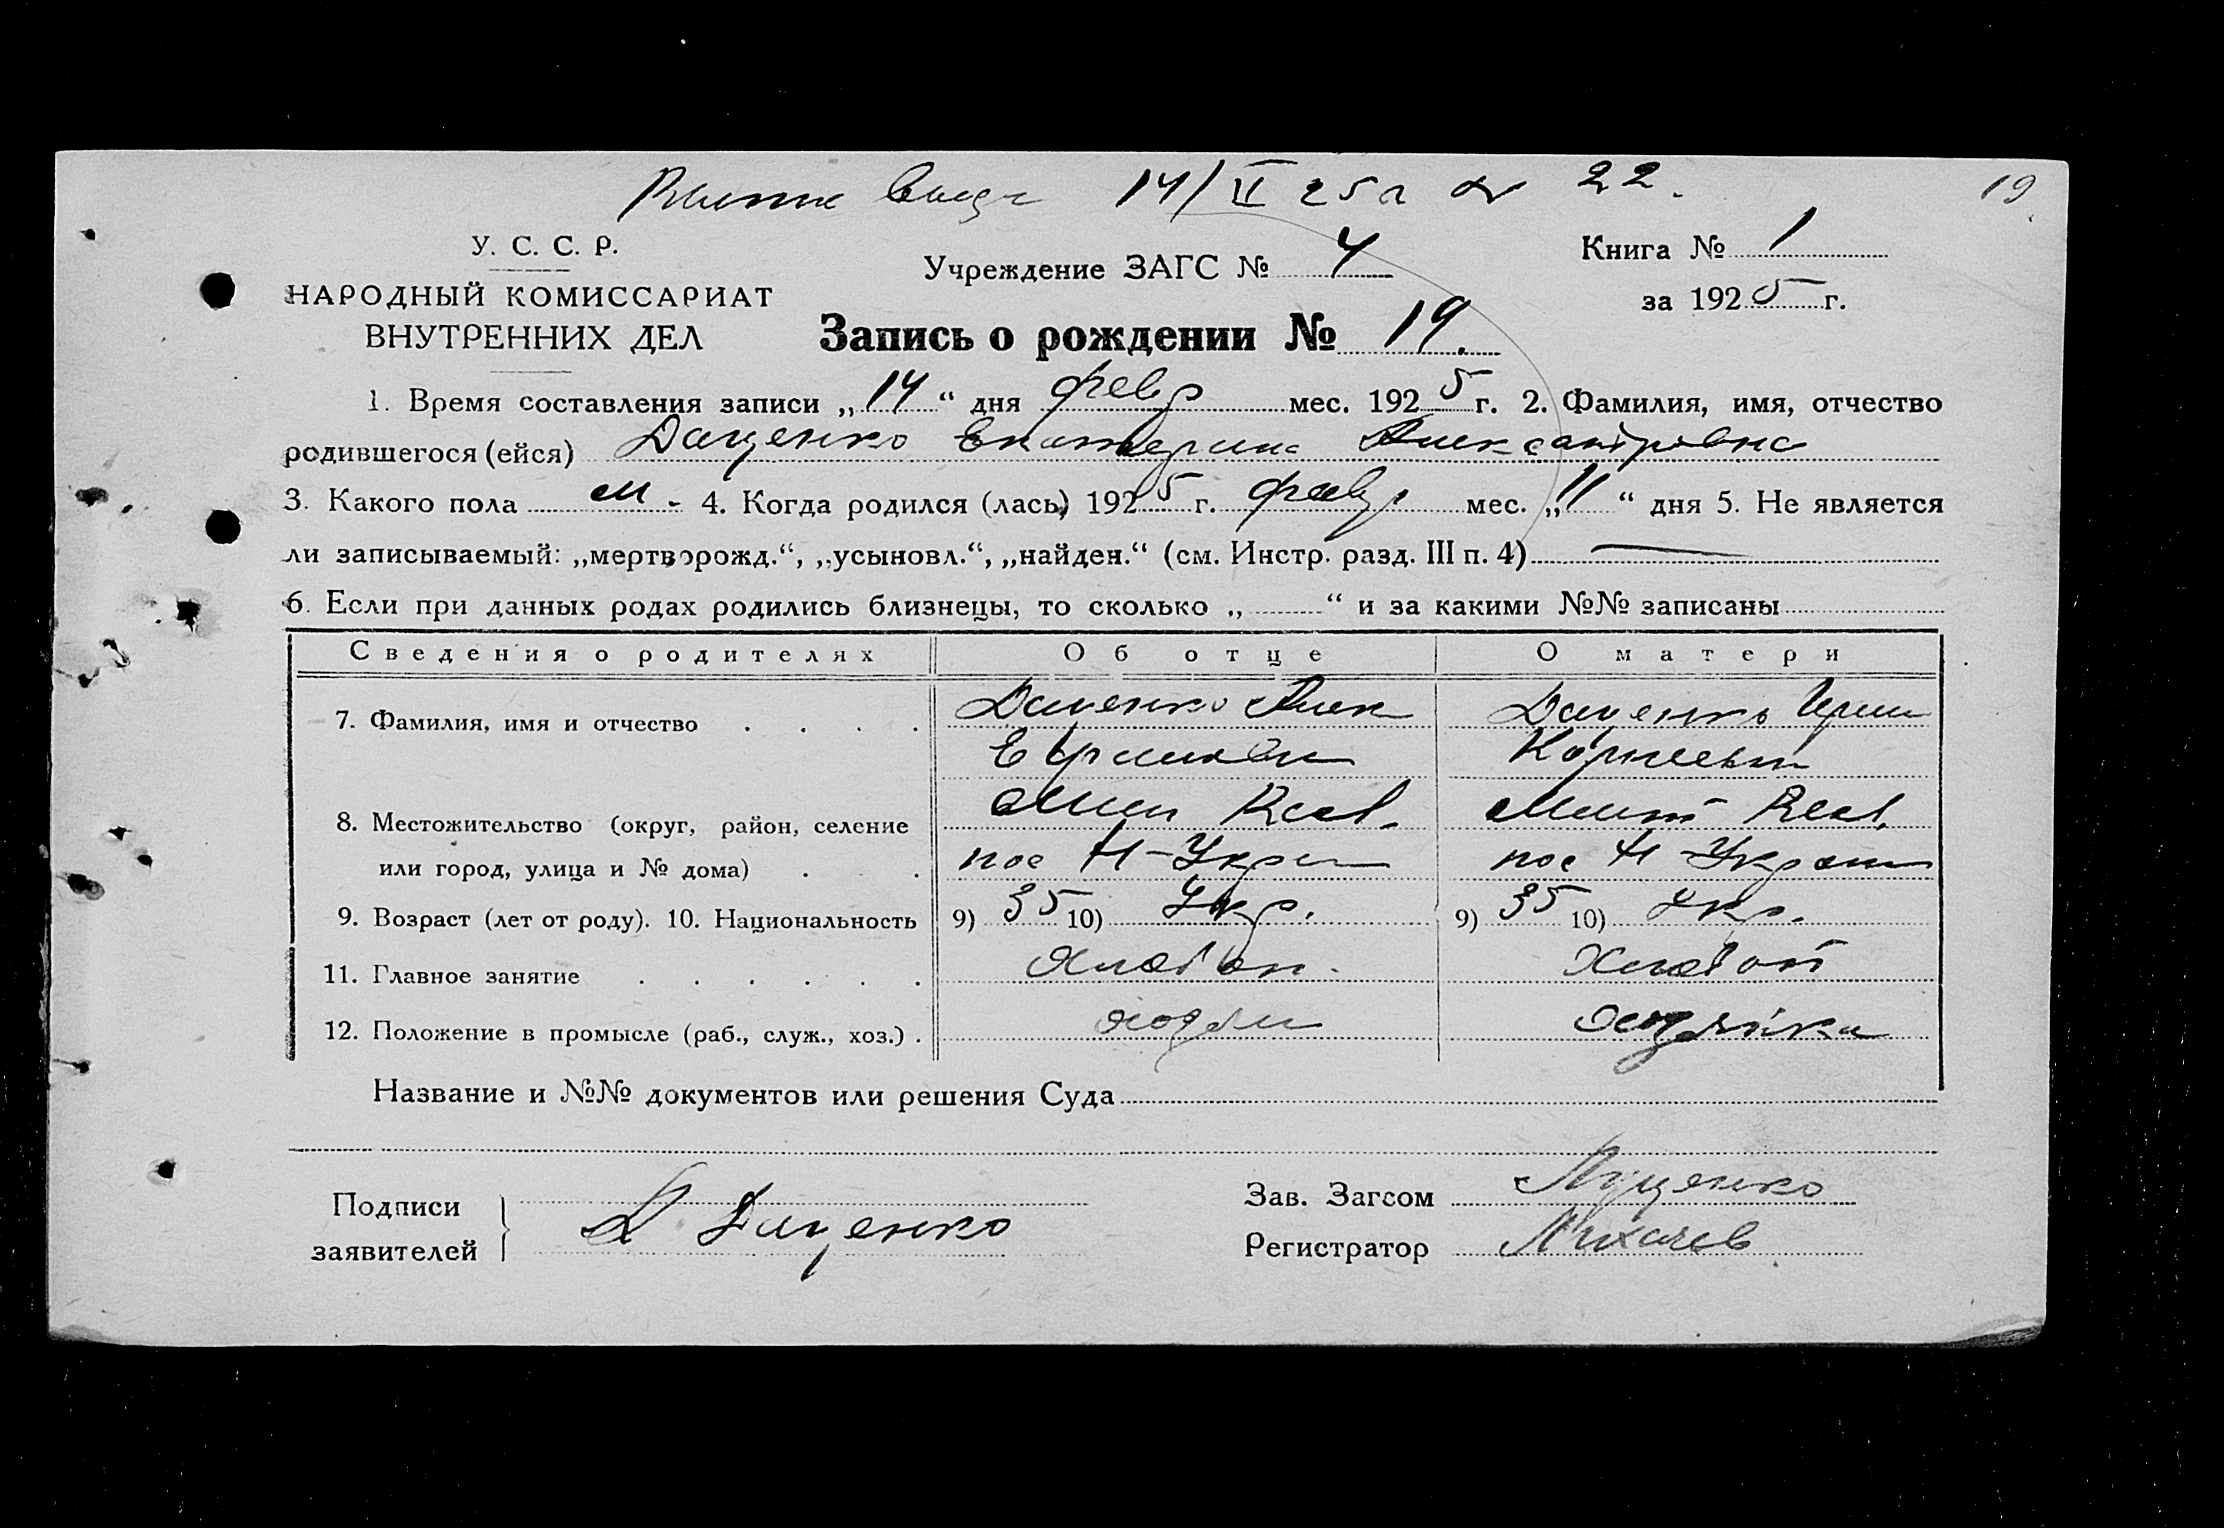 14/II 25 г № 22.
19.
У. С. С. Р.
НАРОДНЫЙ КОМИССАРИАТ
ВНУТРЕННИХ ДЕЛ
Учреждение ЗАГС № 4
Книга № 1
за 1925 г.
Запись о рождении № 19.
1. Время составления записи „14“ дня февр мес. 1925 г. 2. Фамилия, имя, отчество
родившегося (ейся) Даценко Екатерина Александровна
3. Какого пола м - 4. Когда родился (лась) 1925 г. февр мес. „11“ дня 5. Не является
ли записываемый: „мертворожд.“, „усыновл.“, „найден.“ (см. Инстр. разд. III п. 4)
6. Если при данных родах родились близнецы, то сколько „ “ и за какими №№ записаны
Сведения о родителях Об отце О матери
7. Фамилия, имя и отчество . . . . Даценко Алек Даценко Ирин
Корнеевн
8. Местожительство (округ, район, селение
или город, улица и № дома) . . . пос Н-Укра пос Н-Украин
9. Возраст (лет от роду). 10. Национальность 9) 35 10) Укр. 9) 35 10) Укр.
11. Главное занятие . . . . . . Хлебоп. Хлебоп
12. Положение в промысле (раб., служ., хоз.) . хозяин хозяйка
Название и №№ документов или решения Суда
Подписи
заявителей
Даценко
Зав. Загсом Луценко
Регистратор Лихачев